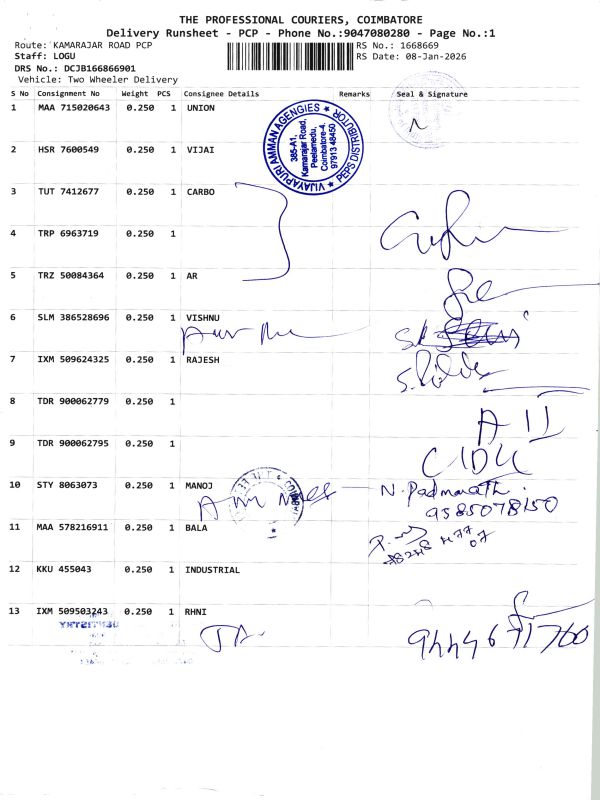 THE PROFESSIONAL COURIERS, COIMBATORE
Delivery Runsheet - PCP - Phone No.:9047080280 - Page No.:1
Route: KAMARAJAR ROAD PCP RS No.: 1668669
Staff: LOGU RS Date: 08-Jan-2026
DRS No.: DCJB166866901
Vehicle: Two Wheeler Delivery
S No Consignment No Weight PCS Consignee Details Remarks Seal & Signature
1 MAA 715020643 0.250 1 UNION
VIJAYAPURI AMMAN AGENCIES
385-A1,
Kamarajar Road,
Peelamedu,
Coimbatore-4.
97913 48450
PEPS DISTRIBUTOR
2 HSR 7600549 0.250 1 VIJAI
3 TUT 7412677 0.250 1 CARBO
4 TRP 6963719 0.250 1
5 TRZ 50084364 0.250 1 AR
6 SLM 386528696 0.250 1 VISHNU
7 IXM 509624325 0.250 1 RAJESH
8 TDR 900062779 0.250 1
A II
9 TDR 900062795 0.250 1
10 STY 8063073 0.250 1 MANOJ
N. Padmavathi
9585078150
11 MAA 578216911 0.250 1 BALA
12 KKU 455043 0.250 1 INDUSTRIAL
13 IXM 509503243 0.250 1 RHNI
9444671760